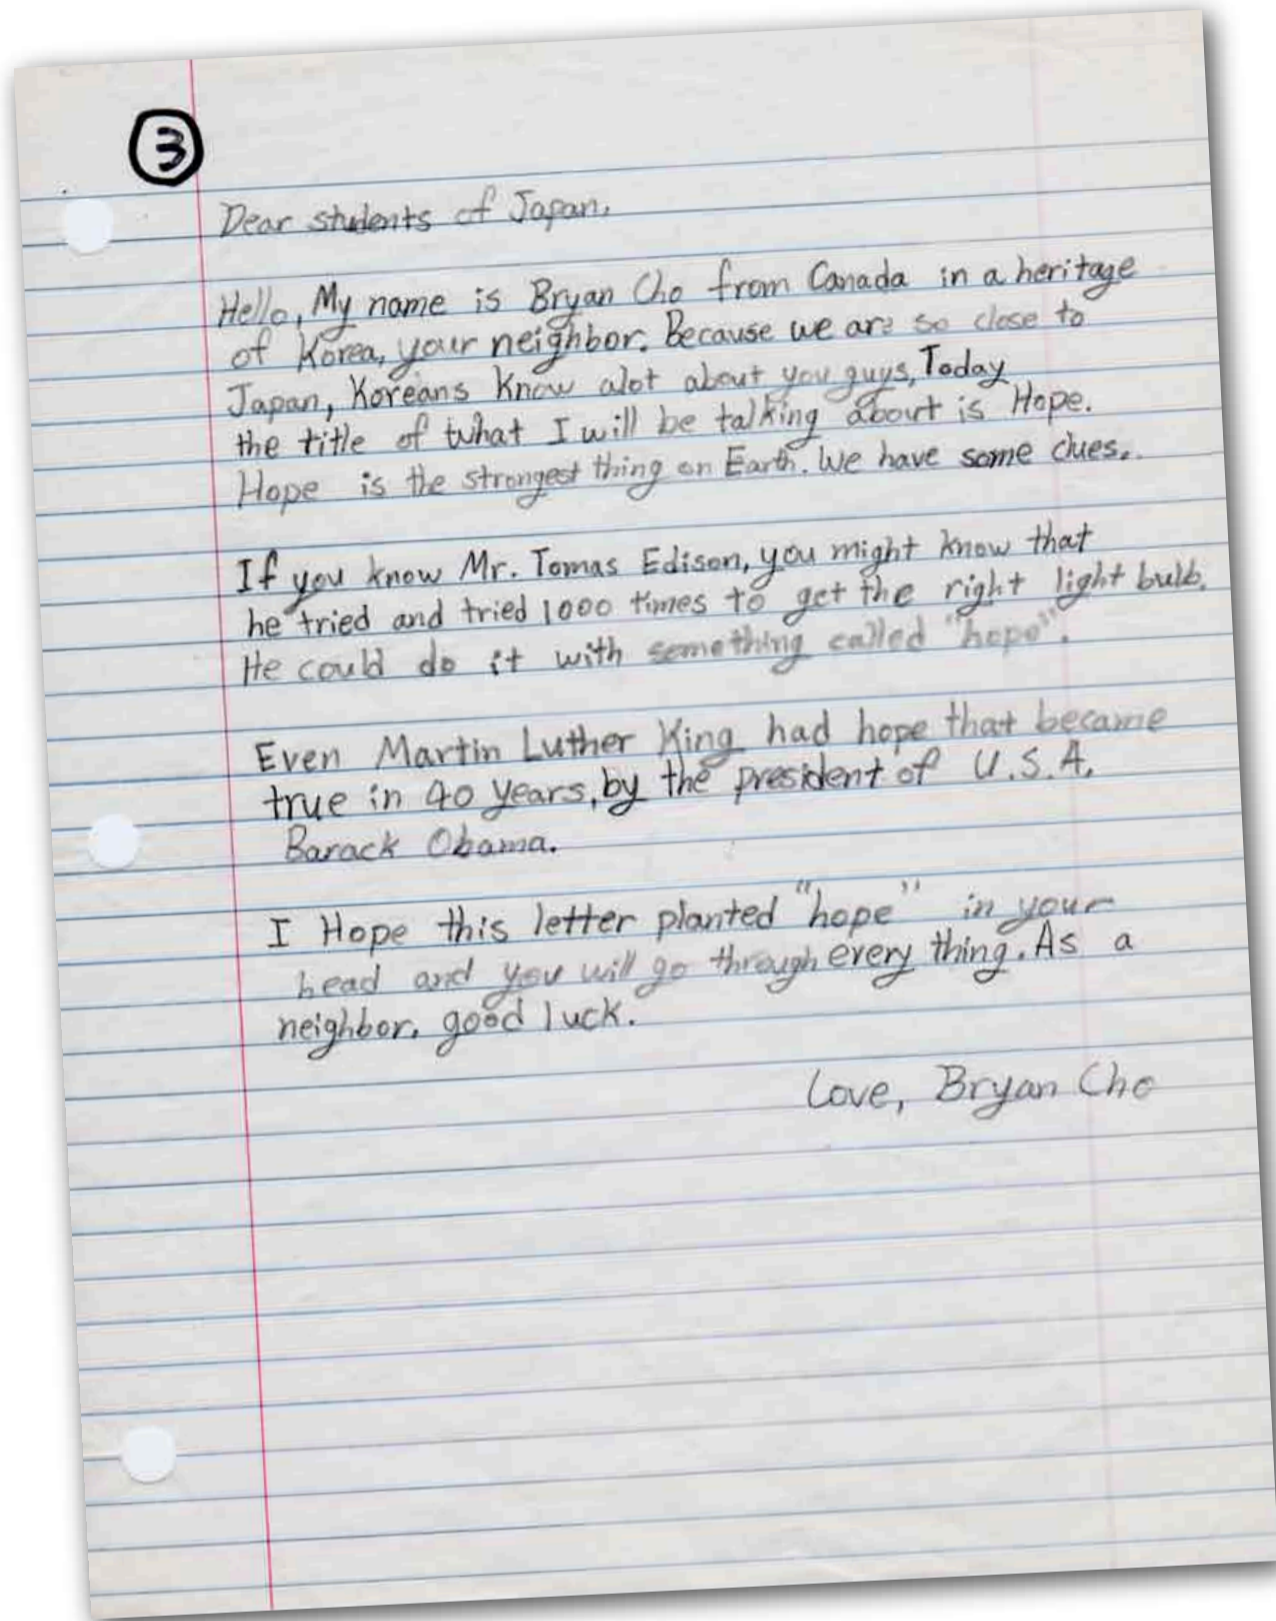 3
Dear students of Japan,
Hello, My name is Bryan Cho from Canada in a heritage
of Korea, your neighbor. Because we are so close to
Japan, Koreans know alot about you guys, Today
the title of what I will be talking about is Hope.
Hope is the strongest thing on Earth. We have some clues.
If you know Mr. Tomas Edison, you might know that
he tried and tried 1000 times to get the right light bulb.
He could do it with something called "hope".
Even Martin Luther King had hope that became
true in 40 years, by the president of U.S.A.
Barack Obama.
I Hope this letter planted "hope" in your
head and you will go through every thing. As a
neighbor, good luck.
Love, Bryan Cho